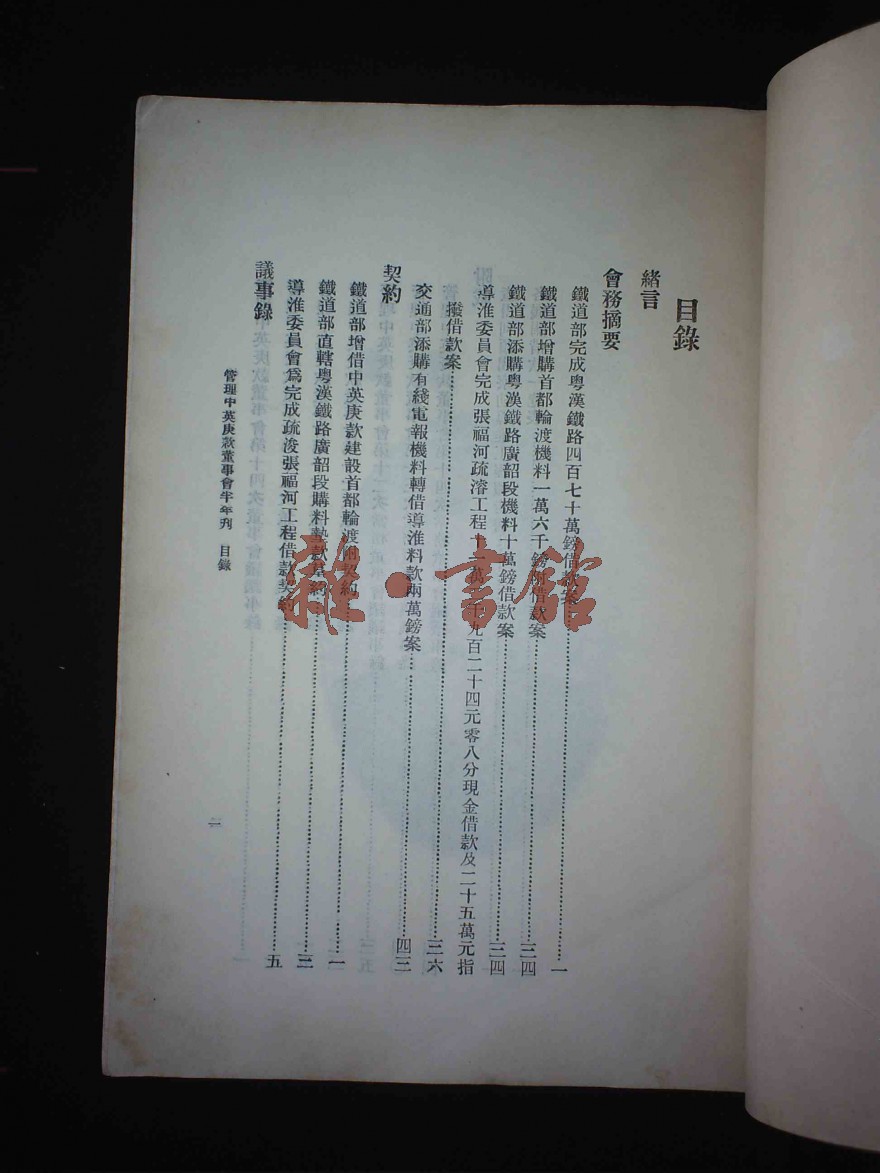 目錄
緒言
會務摘要
鐵道部完成粵漢鐵路四百七十萬鎊借款案……一
鐵道部增購首都輪渡機料一萬六千鎊附借款案……三四
鐵道部添購粵漢鐵路廣韶段機料十萬鎊借款案……三四
導淮委員會完成張福河疏溶工程十一萬二千九百二十四元零八分現金借款及二十五萬元指
撥借款案……三六
交通部添購有綫電報機料轉借導淮料款兩萬鎊案……四三
契約
鐵道部增借中英庚款建設首都輪渡附契約……一
鐵道部直轄粵漢鐵路廣韶段購料墊款草約……三
導淮委員會爲完成疏浚張福河工程借款契約……五
議事錄
管理中英庚款董事會半年刊 目錄
一
雜·書館